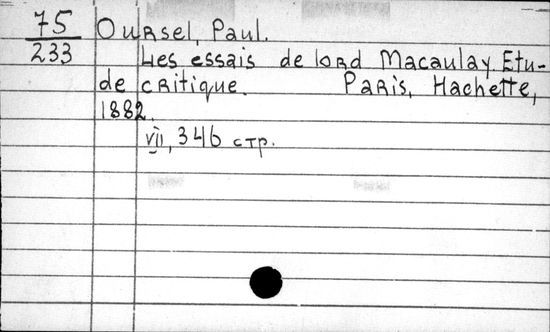 75 Oursel, Paul.
233 Les essais de lord Macaulay. Etu-
de critique. Paris, Hachette,
1882.
vii, 346 стр.